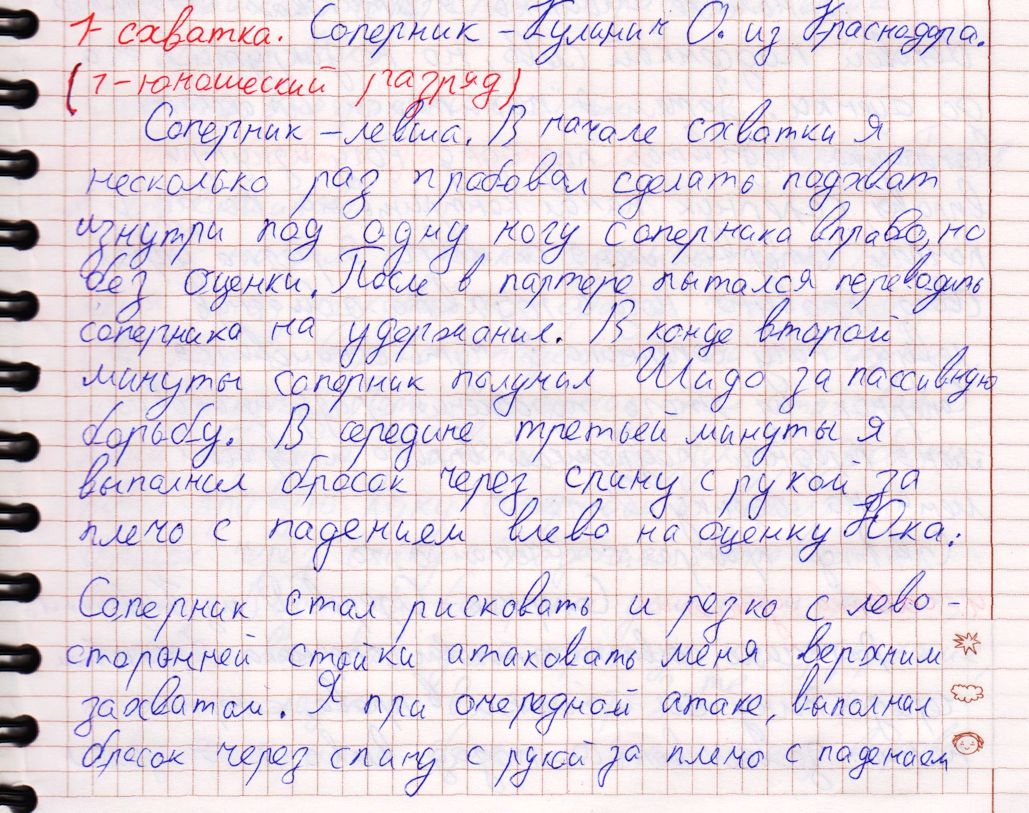 1 схватка. Соперник – Кулинич О. из Краснодара.
(1-юношеский разряд)
Соперник – левша. В начале схватки я
несколько раз пробовал сделать подхват
изнутри под одну ногу соперника вправо, но
без оценки. После в партере пытался переводить
соперника на удержания. В конце второй
минуты соперник получил Шидо за пассивную
борьбу. В середине третьей минуты я
выполнил бросок через спину с рукой за
плечо с падением влево на оценку Юка.
Соперник стал рисковать и резко с лево-
сторонней стойки атаковать меня верхним
захватом. Я при очередной атаке, выполнил
бросок через спину с рукой за плечо с падением